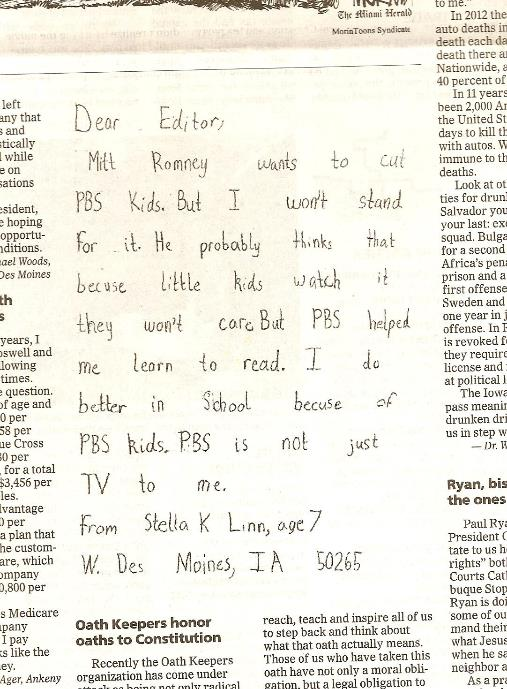 The Miami Herald
MorinToons Syndicate
left
any that
s and
stically
l while
e on
sations
esident,
e hoping
opportu-
nditions.
ael Woods,
Des Moines
th
s
years, I
oswell and
llowing
times.
e question.
of age and
0 per
58 per
ue Cross
30 per
, for a total
$3,456 per
les.
dvantage
0 per
a plan that
he custom-
are, which
ompany
0,800 per
s Medicare
pany
I pay
ks like the
ney.
Ager, Ankeny
Dear Editor,
Mitt Romney wants to cut
PBS Kids. But I won't stand
for it. He probably thinks that
becuse little kids watch it
they won't care But PBS helped
me learn to read. I do
better in School becuse of
PBS kids. PBS is not just
TV to me.
From Stella K Linn, age 7
W. Des Moines, IA 50265
Oath Keepers honor
oaths to Constitution
Recently the Oath Keepers
organization has come under
attack as being not only radical
reach, teach and inspire all of us
to step back and think about
what that oath actually means.
Those of us who have taken this
oath have not only a moral obli-
gation, but a legal obligation to
to me."
In 2012 the
auto deaths in
death each da
death there ar
Nationwide, a
40 percent of
In 11 years
been 2,000 Am
the United St
days to kill th
with autos. W
immune to th
deaths.
Look at ot
ties for drunk
Salvador you
your last: exe
squad. Bulga
for a second
Africa's pena
prison and a
first offense
Sweden and
one year in j
offense. In F
is revoked fo
they require
license and
at political l
The Iowa
pass meanin
drunken dri
us in step w
— Dr. W
Ryan, bis
the ones
Paul Rya
President O
tate to us h
rights" both
Courts Cath
buque Stop
Ryan is doi
some of ou
mand their
what Jesus
when he sa
neighbor a
As a pra